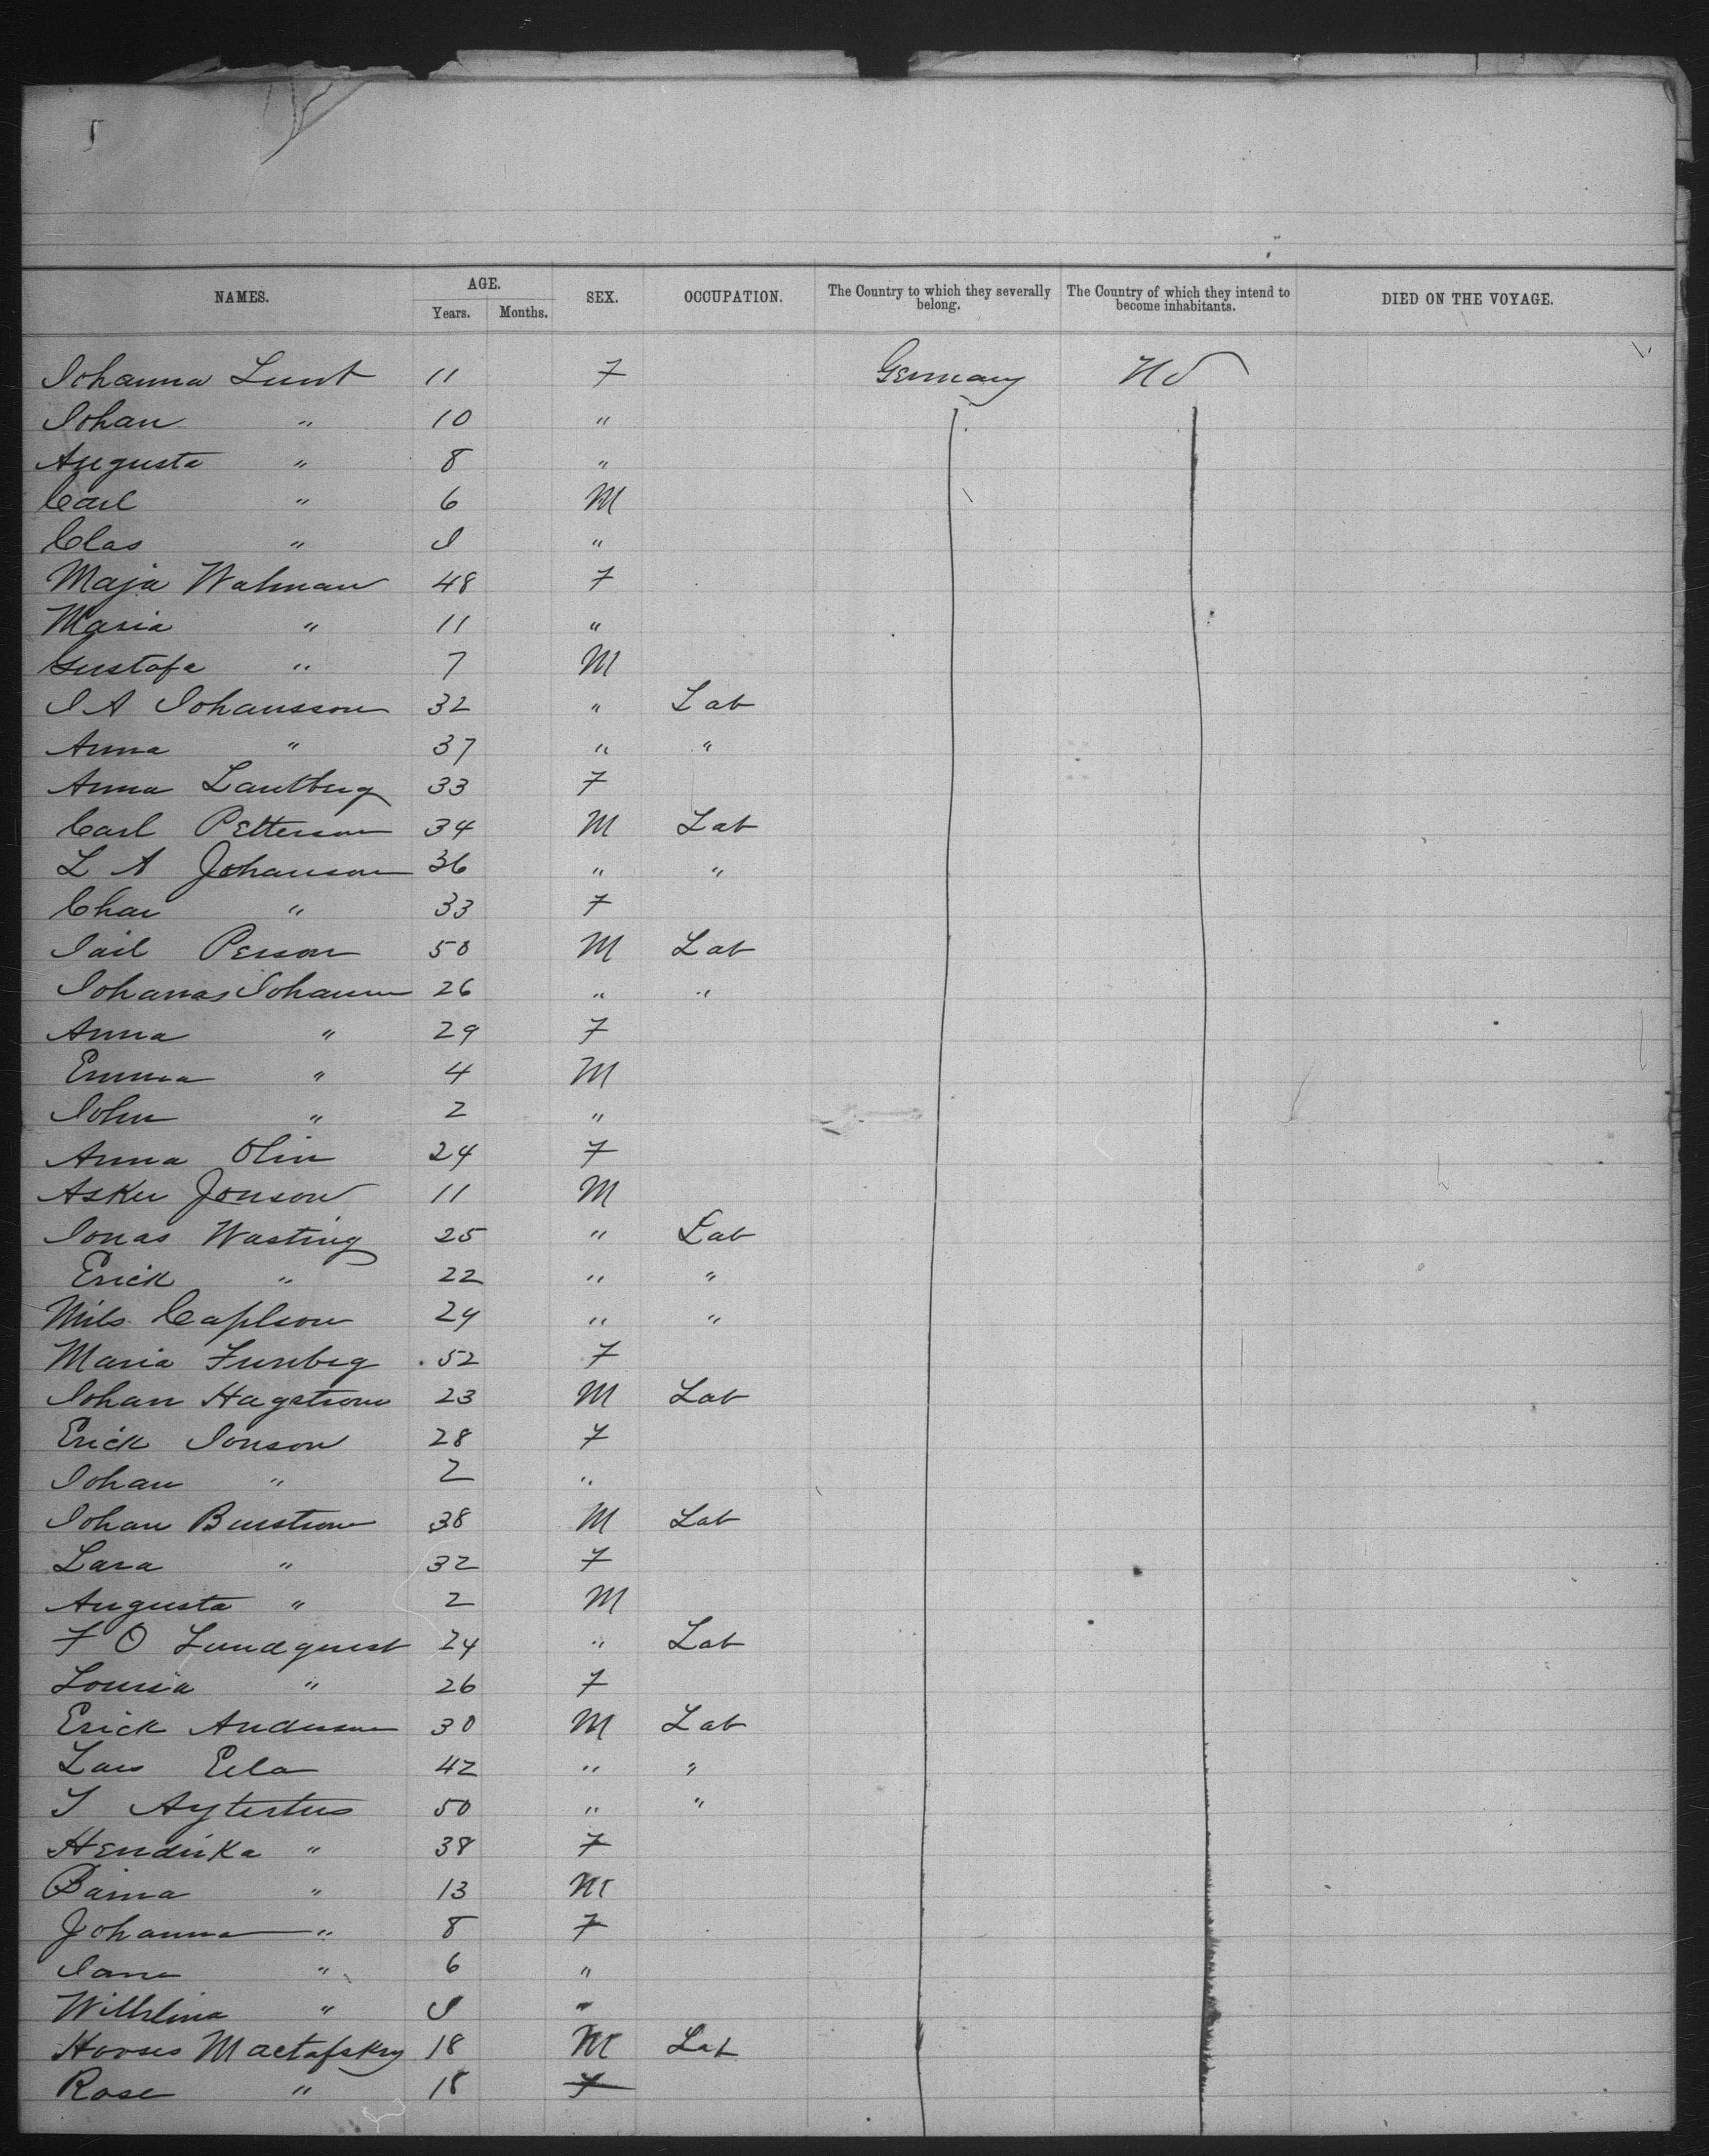 NAMES. AGE. Years. Months. SEX. OCCUPATION. The Country to which they severally belong. The Country of which they intend to become inhabitants. DIED ON THE VOYAGE.
Johanna Lunt 11 F Germany US
Johan " 10 "
Augusta " 8 "
Carl " 6 M
Clas " I "
Maja Walman 48 F
Maria " 11 "
Gustafa " 7 M
I A Johansson 32 " Lab
Anna " 37 " "
Anna Lantberg 33 F
Carl Petterson 34 M Lab
L A Johanson 36 " "
Char " 33 F
Person 50 M Lab
Johanas Johanson 26 " "
Anna " 29 F
Emma " 4 M
John " 2 "
Anna Olin 24 F
Asker Jonson 11 M
Jonas Wasting 25 " Lab
Erick " 22 " "
Nils Caplson 24 " "
Maria Furberg 52 F
Johan Hagstrom 23 M Lab
Erick Jonson 28 F
Johan " 2 "
Johan Burstrom 38 M Lab
Lara " 32 F
Augusta " 2 M
F O Lundquist 24 " Lab
Lousia " 26 F
Erick Anderson 30 M Lab
Lars 42 " "
50 " "
Hendrika " 38 F
" 13 M
Johanna " 8 F
Jane " 6 "
Wilhelmina " I "
Mactafsky 18 M Lab
Rose " 18 F